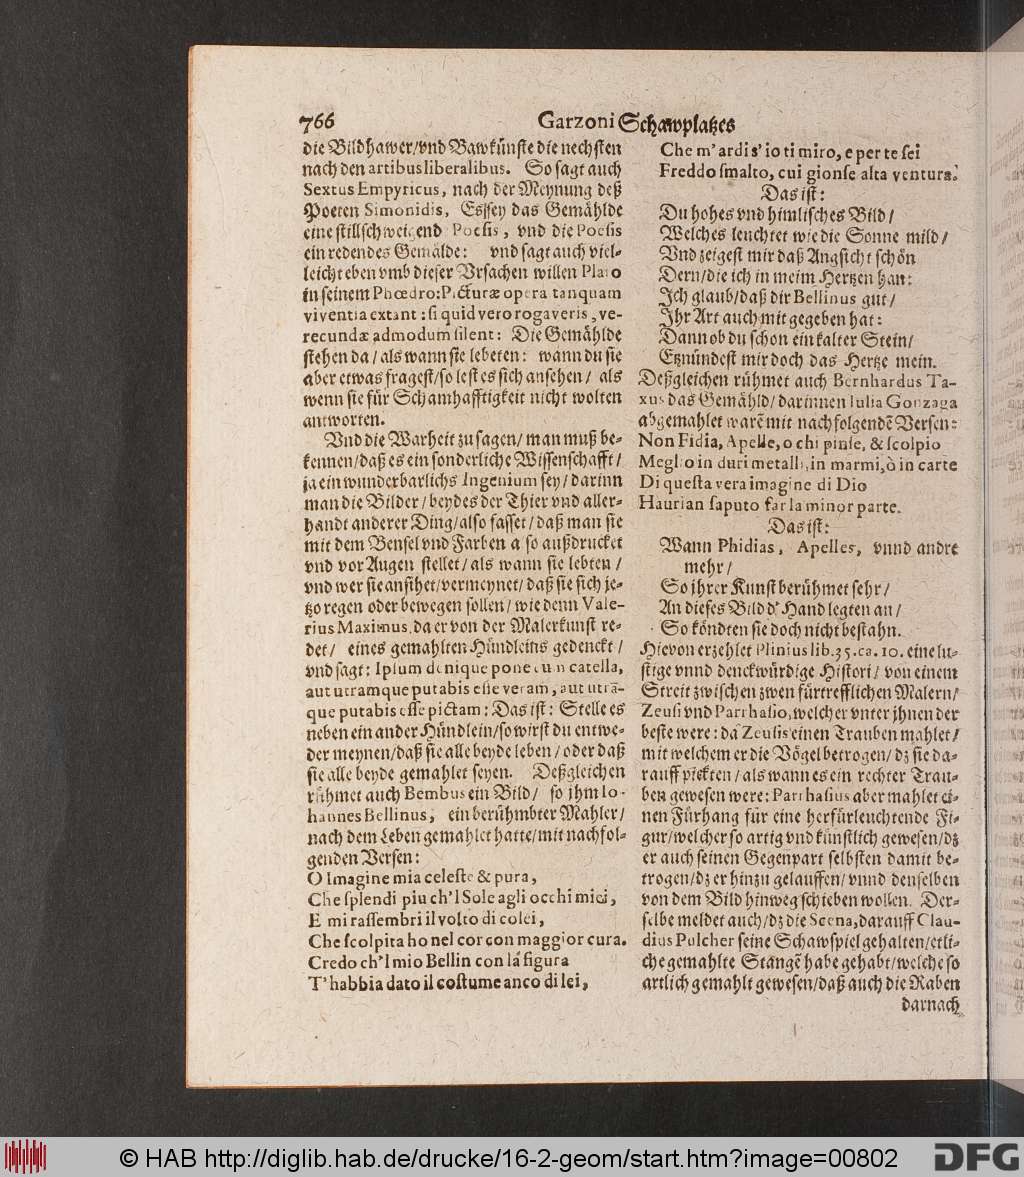 766
Garzoni Schawplatzes
die Bildhawer/vnd Bawkünste die nechsten
nach den artibus liberalibus. So sagt auch
Sextus Empyricus, nach der Meynung deß
Poeten Simonidis, Es sey das Gemählde
eine stillschweigend Poesis, vnd die Poesis
ein redendes Gemälde: vnd sagt auch viel-
leicht eben vmb dieser Vrsachen willen Plato
in seinem Phœdro: Picturæ opera tanquam
viventia extant: si quid vero rogaveris, ve-
recundæ admodum silent: Die Gemählde
stehen da/ als wann sie lebeten: wann du sie
aber etwas fragest/ so lest es sich ansehen/ als
wenn sie für Schamhafftigkeit nicht wolten
antworten.
Vnd die Warheit zu sagen/ man muß be-
kennen/ daß es ein sonderliche Wissenschafft/
ja ein wunderbarlichs Ingenium sey/ darinn
man die Bilder/ beydes der Thier vnd aller-
handt anderer Ding/ also fasset/ daß man sie
mit dem Bensel vnd Farben also außdrucket
vnd vor Augen stellet/ als wann sie lebten/
vnd wer sie ansihet/ vermeynet/ daß sie sich je-
tzo regen oder bewegen sollen/ wie denn Vale-
rius Maximus, da er von der Malerkunst re-
det/ eines gemahlten Hündleins gedenckt/
vnd sagt: Ipsum denique pone cum catella,
aut utramque putabis esse veram, aut utrã-
que putabis esse pictam: Das ist: Stelle es
neben ein ander Hündlein/ so wirst du entwe-
der meynen/ daß sie alle beyde leben/ oder daß
sie alle beyde gemahlet seyen. Deßgleichen
rühmet auch Bembus ein Bild/ so jhm Io-
hannes Bellinus, ein berühmbter Mahler/
nach dem Leben gemahlet hatte/ mit nachfol-
genden Versen:
O Imagine mia celeste & pura,
Che splendi piu ch'l Sole agli occhi mici,
E mi rassembri il volto di colei,
Che scolpita ho nel cor con maggior cura.
Credo ch'l mio Bellin con la figura
T'habbia dato il costume anco di lei,
Che m'ardi s'io ti miro, e per te sei
Freddo smalto, cui gionse alta ventura.
Das ist:
Du hohes vnd himlisches Bild/
Welches leuchtet wie die Sonne mild/
Vnd zeigest mir daß Angsicht schön
Dern/ die ich in meim Hertzen han:
Ich glaub/ daß dir Bellinus gut/
Ihr Art auch mit gegeben hat:
Dann ob du schon ein kalter Stein/
Etzündest mir doch das Hertze mein.
Deßgleichen rühmet auch Bernhardus Ta-
xus das Gemähld/ darinnen Iulia Gonzaga
abgemahlet warẽ mit nachfolgendẽ Versen:
Non Fidia, Apelle, o chi pinse, & scolpio
Meglio in duri metalli, in marmi, ò in carte
Di questa vera imagine di Dio
Haurian saputo far la minor parte.
Das ist:
Wann Phidias, Apelles, vnnd andre
mehr/
So jhrer Kunst berühmet sehr/
An dieses Bild d' Hand legten an/
So köndten sie doch nicht bestahn.
Hievon erzehlet Plinius lib. 35. ca. 10. eine lu-
stige vnnd denckwürdige Histori/ von einem
Streit zwischen zwen fürtrefflichen Malern/
Zeusi vnd Parrhasio, welcher vnter jhnen der
beste were: da Zeusis einen Trauben mahlet/
mit welchem er die Vögel betrogen/ dz sie da-
rauff piekten/ als wann es ein rechter Trau-
ben gewesen were: Parrhasius aber mahlet ei-
nen Fürhang für eine herfürleuchtende Fi-
gur/ welcher so artig vnd künstlich gewesen/ dz
er auch seinen Gegenpart selbsten damit be-
trogen/ dz er hinzu gelauffen/ vnnd denselben
von dem Bild hinweg schieben wollen. Der-
selbe meldet auch/ dz die Scena, darauff Clau-
dius Pulcher seine Schawspiel gehalten/ etli-
che gemahlte Stangẽ habe gehabt/ welche so
artlich gemahlt gewesen/ daß auch die Raben
darnach
© HAB http://diglib.hab.de/drucke/16-2-geom/start.htm?image=00802
DFG